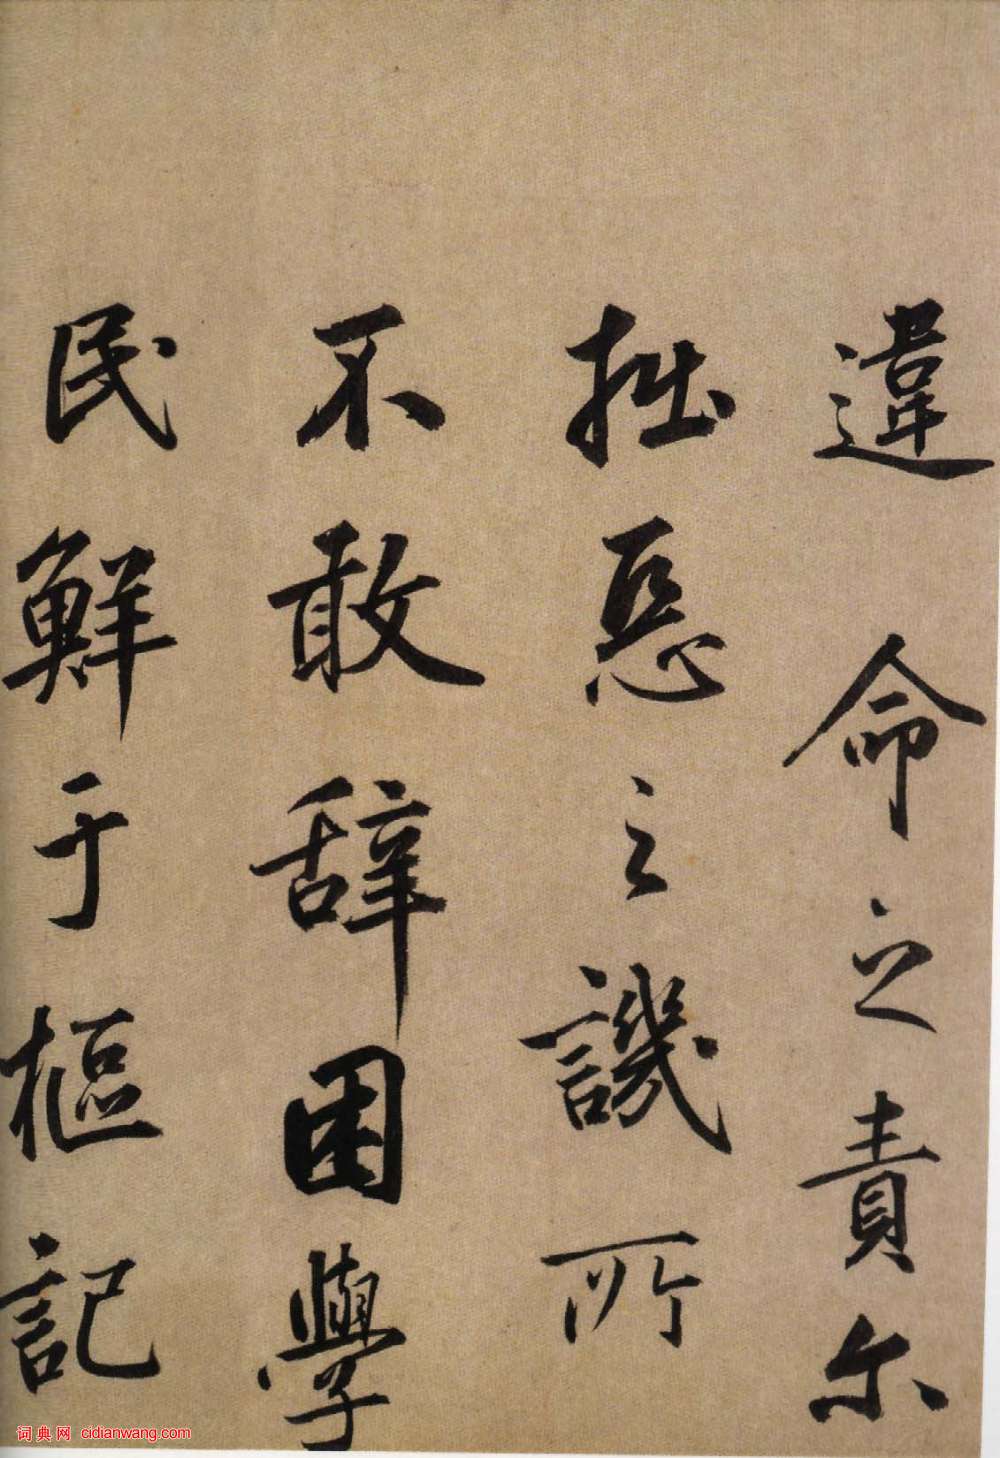 違命之責尔
拙惡之譏所
不敢辭困學
民鮮于樞記
词典网 cidianwang.com